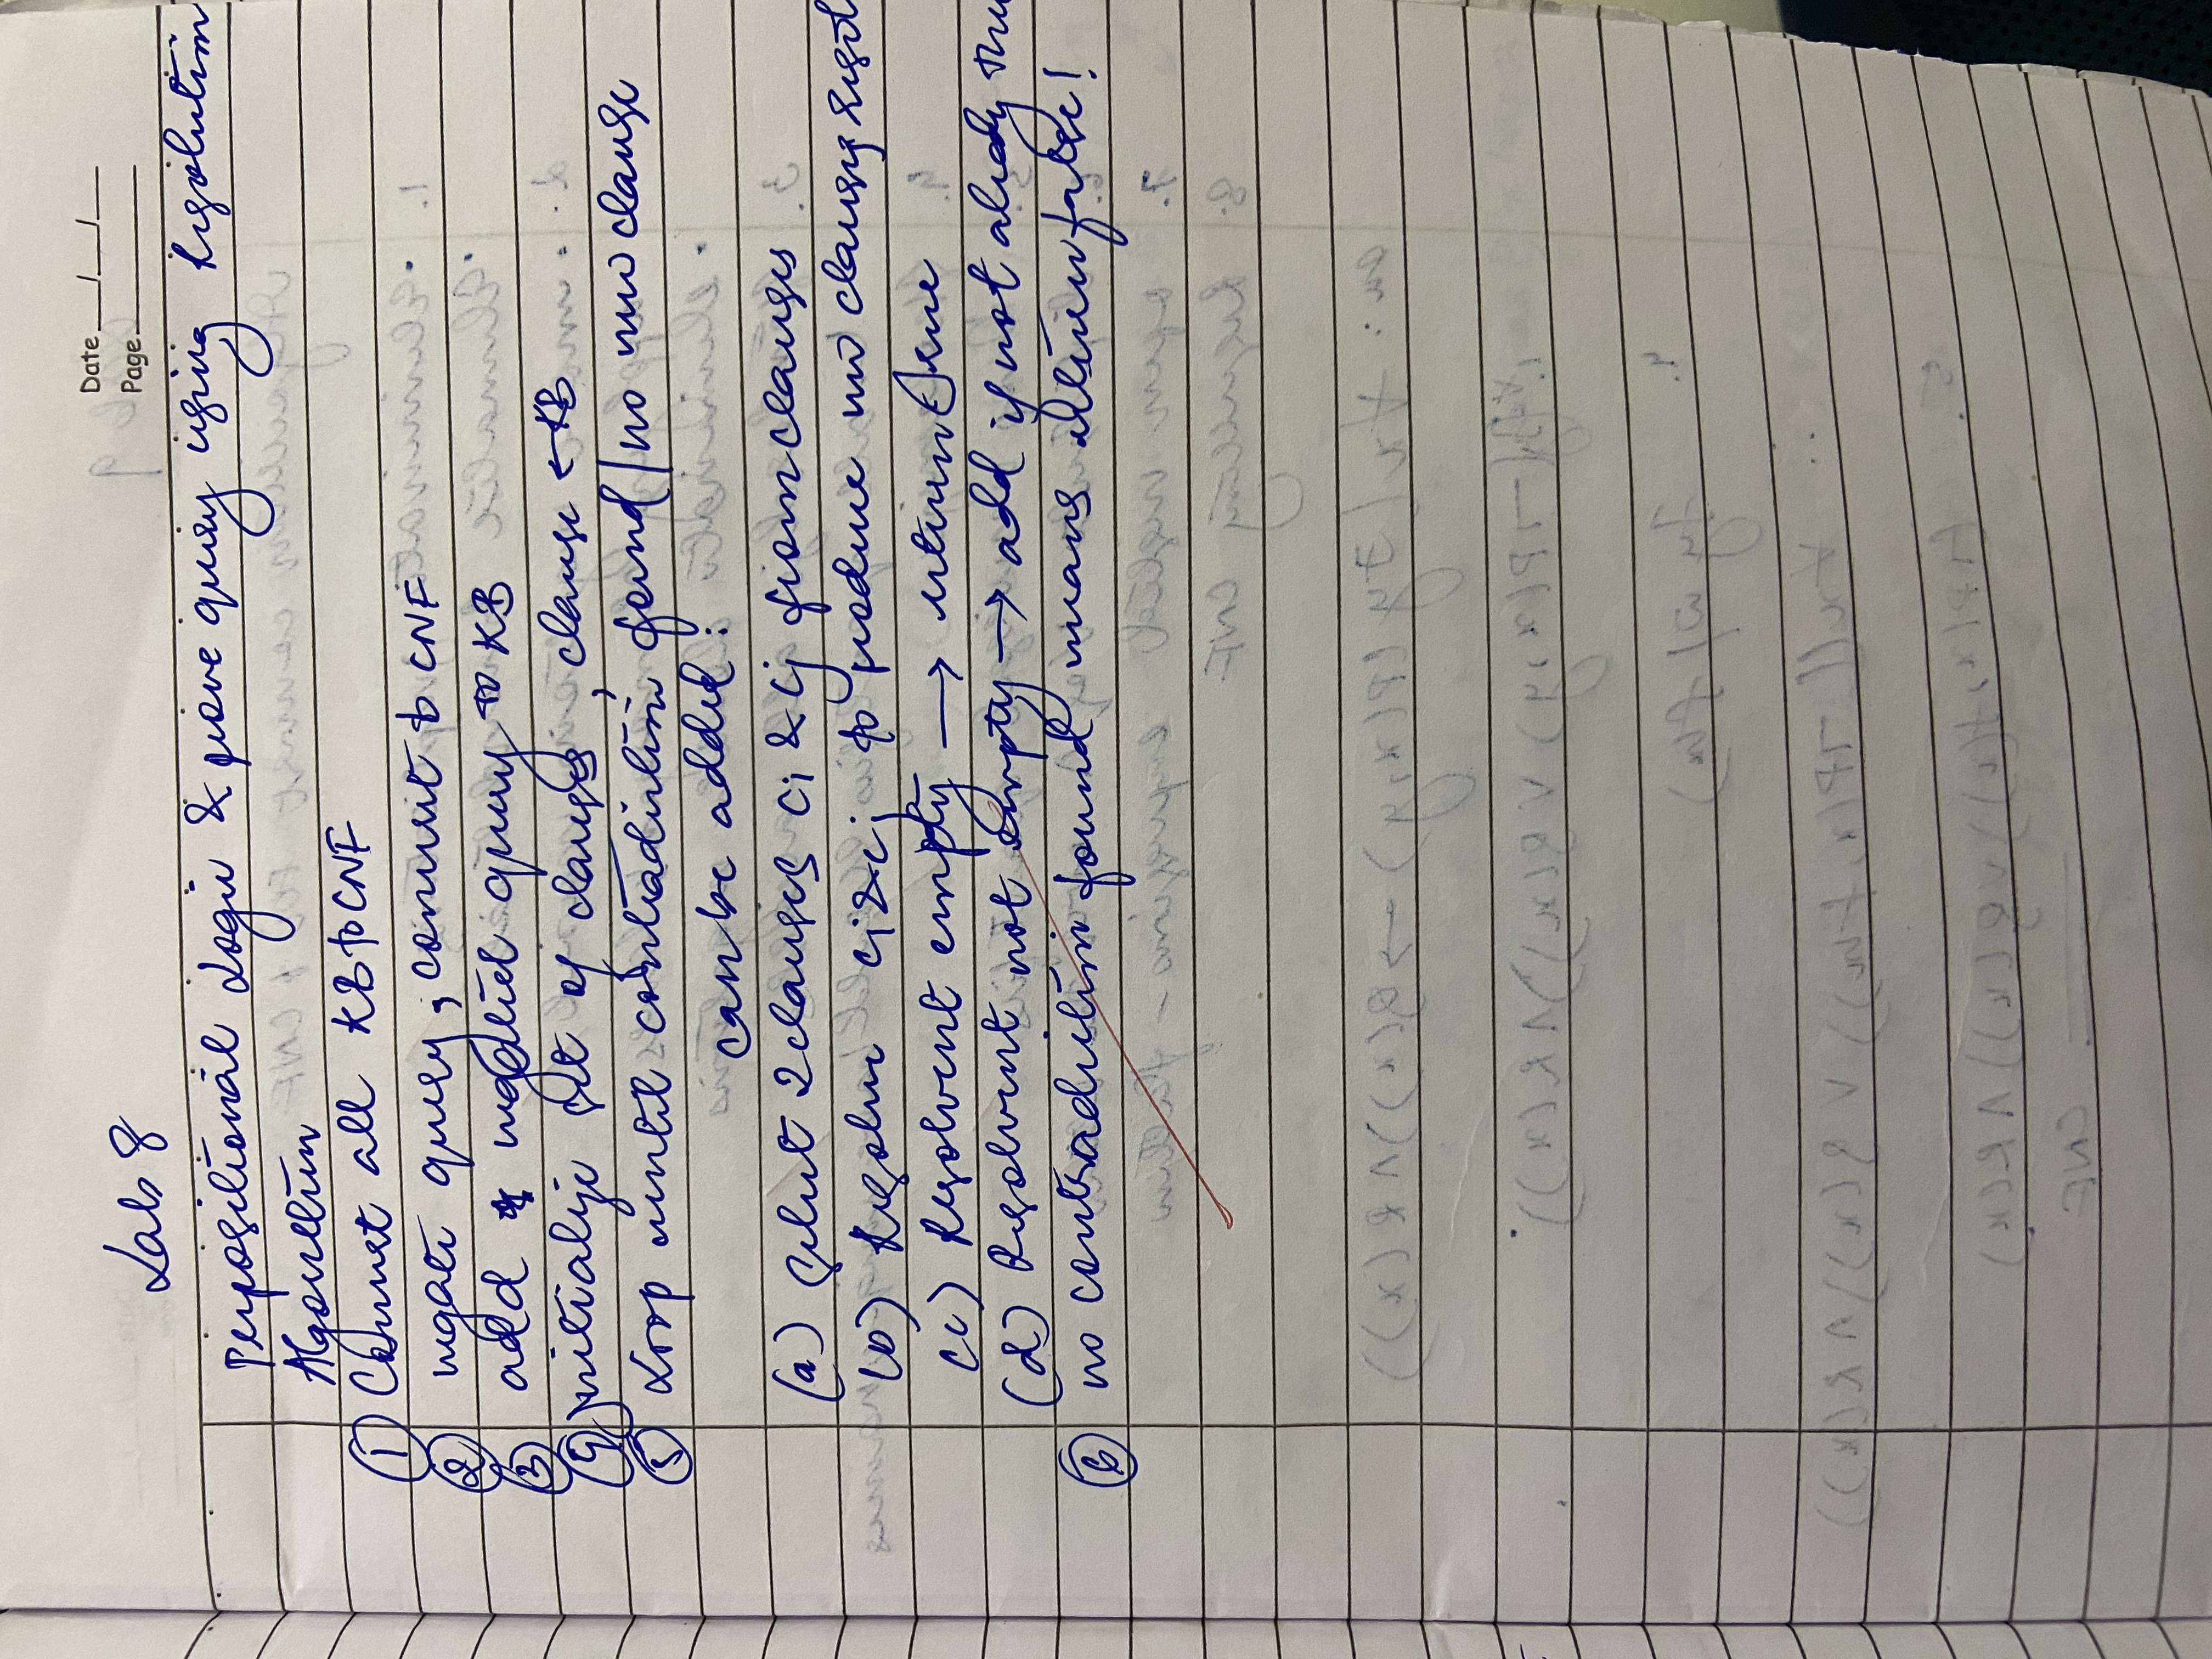 Date __/__/__
Page
Lab 8
Propositional Logic & prove query using Resolution
Algorithm
① Convert all KB to CNF
② negate query, convert to CNF
③ add negated query to KB
④ initialize set of clauses, clause ← KB
⑤ Loop until contradiction found/no new clause
can be added:
(a) select 2 clauses Ci & Cj from clauses
(b) Resolve Ci & Cj to produce new clauses
(c) Resolvent empty → return true
(d) Resolvent not empty → add if not already
⑥ no contradiction found means return false!